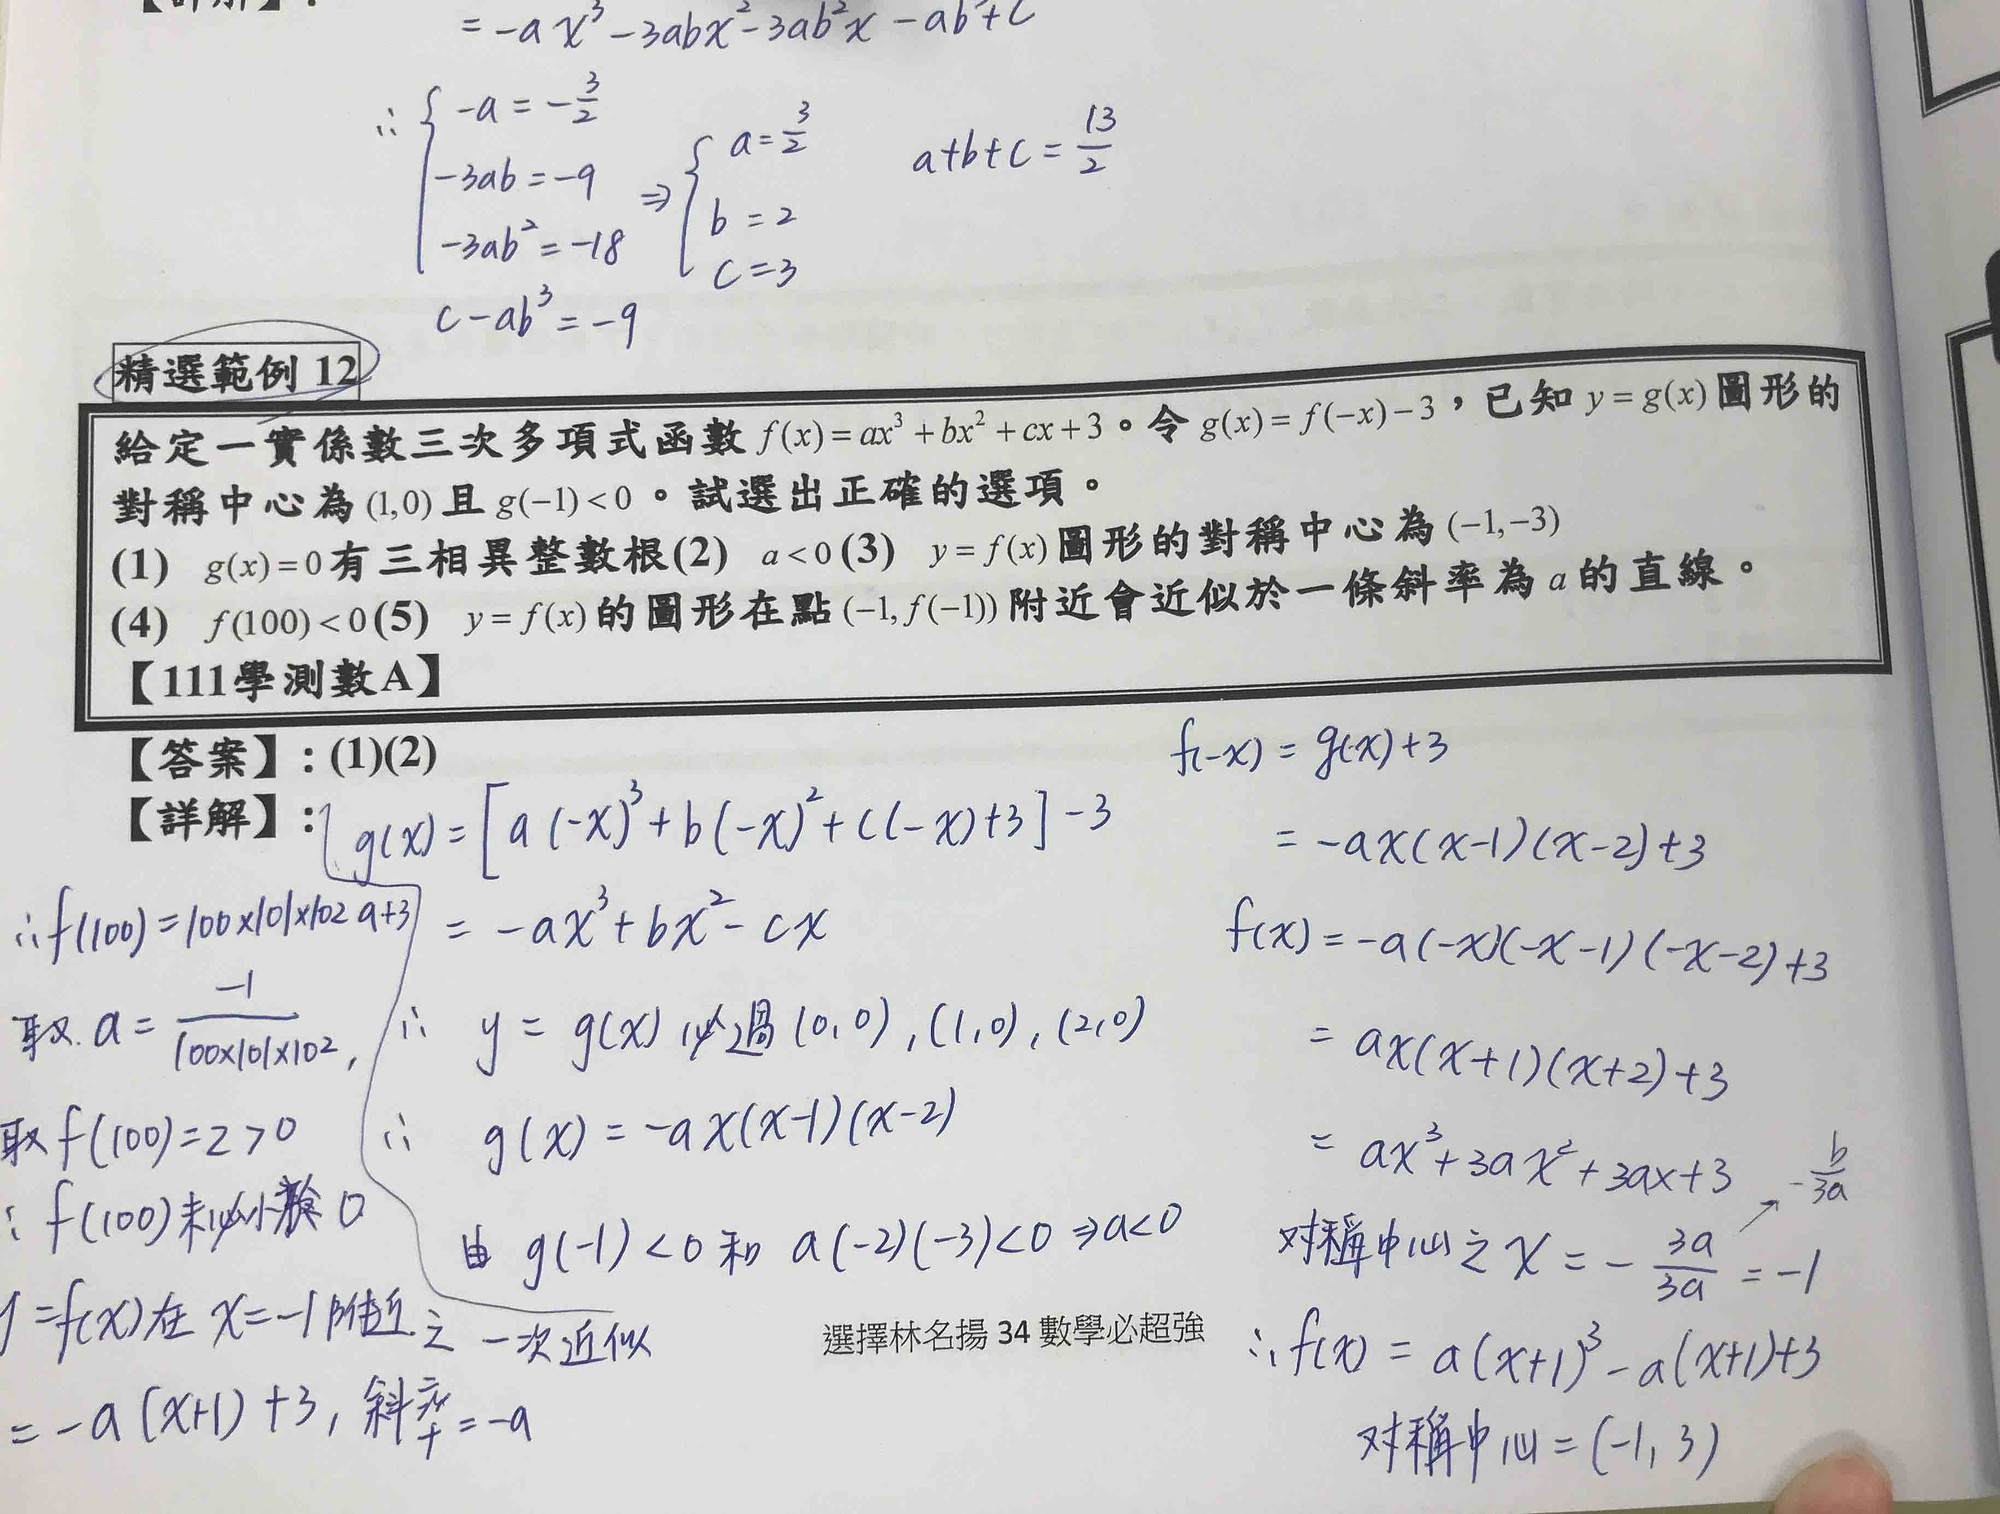 = -ax³ - 3abx² - 3ab²x - ab³ + c
∴ { -a = -3/2
-3ab = -9
-3ab² = -18
c - ab³ = -9
⇒ { a = 3/2
b = 2
c = 3
a+b+c = 13/2
精選範例 12
給定一實係數三次多項式函數 f(x) = ax³ + bx² + cx + 3。令 g(x) = f(-x) - 3，已知 y = g(x) 圖形的
對稱中心為 (1,0) 且 g(-1) < 0。試選出正確的選項。
(1) g(x) = 0 有三相異整數根(2) a < 0 (3) y = f(x) 圖形的對稱中心為 (-1,-3)
(4) f(100) < 0 (5) y = f(x) 的圖形在點 (-1, f(-1)) 附近會近似於一條斜率為 a 的直線。
【111學測數A】
【答案】: (1)(2)
【詳解】:
g(x) = [a(-x)³ + b(-x)² + c(-x) + 3] - 3
= -ax³ + bx² - cx
∴ y = g(x) 必過 (0,0), (1,0), (2,0)
∴ g(x) = -ax(x-1)(x-2)
由 g(-1) < 0 和 a(-2)(-3) < 0 ⇒ a < 0
f(-x) = g(x) + 3
= -ax(x-1)(x-2) + 3
f(x) = -a(-x)(-x-1)(-x-2) + 3
= ax(x+1)(x+2) + 3
= ax³ + 3ax² + 3ax + 3
-b/3a
对稱中心之 x = -3a/3a = -1
∴ f(x) = a(x+1)³ - a(x+1) + 3
对稱中心 = (-1, 3)
∴ f(100) = 100×101×102 a + 3
取 a = -1/(100×101×102),
取 f(100) = 2 > 0
∴ f(100) 未必小於 0
y = f(x) 在 x = -1 附近之一次近似
= -a(x+1) + 3, 斜率 = -a
選擇林名揚 34 數學必超強